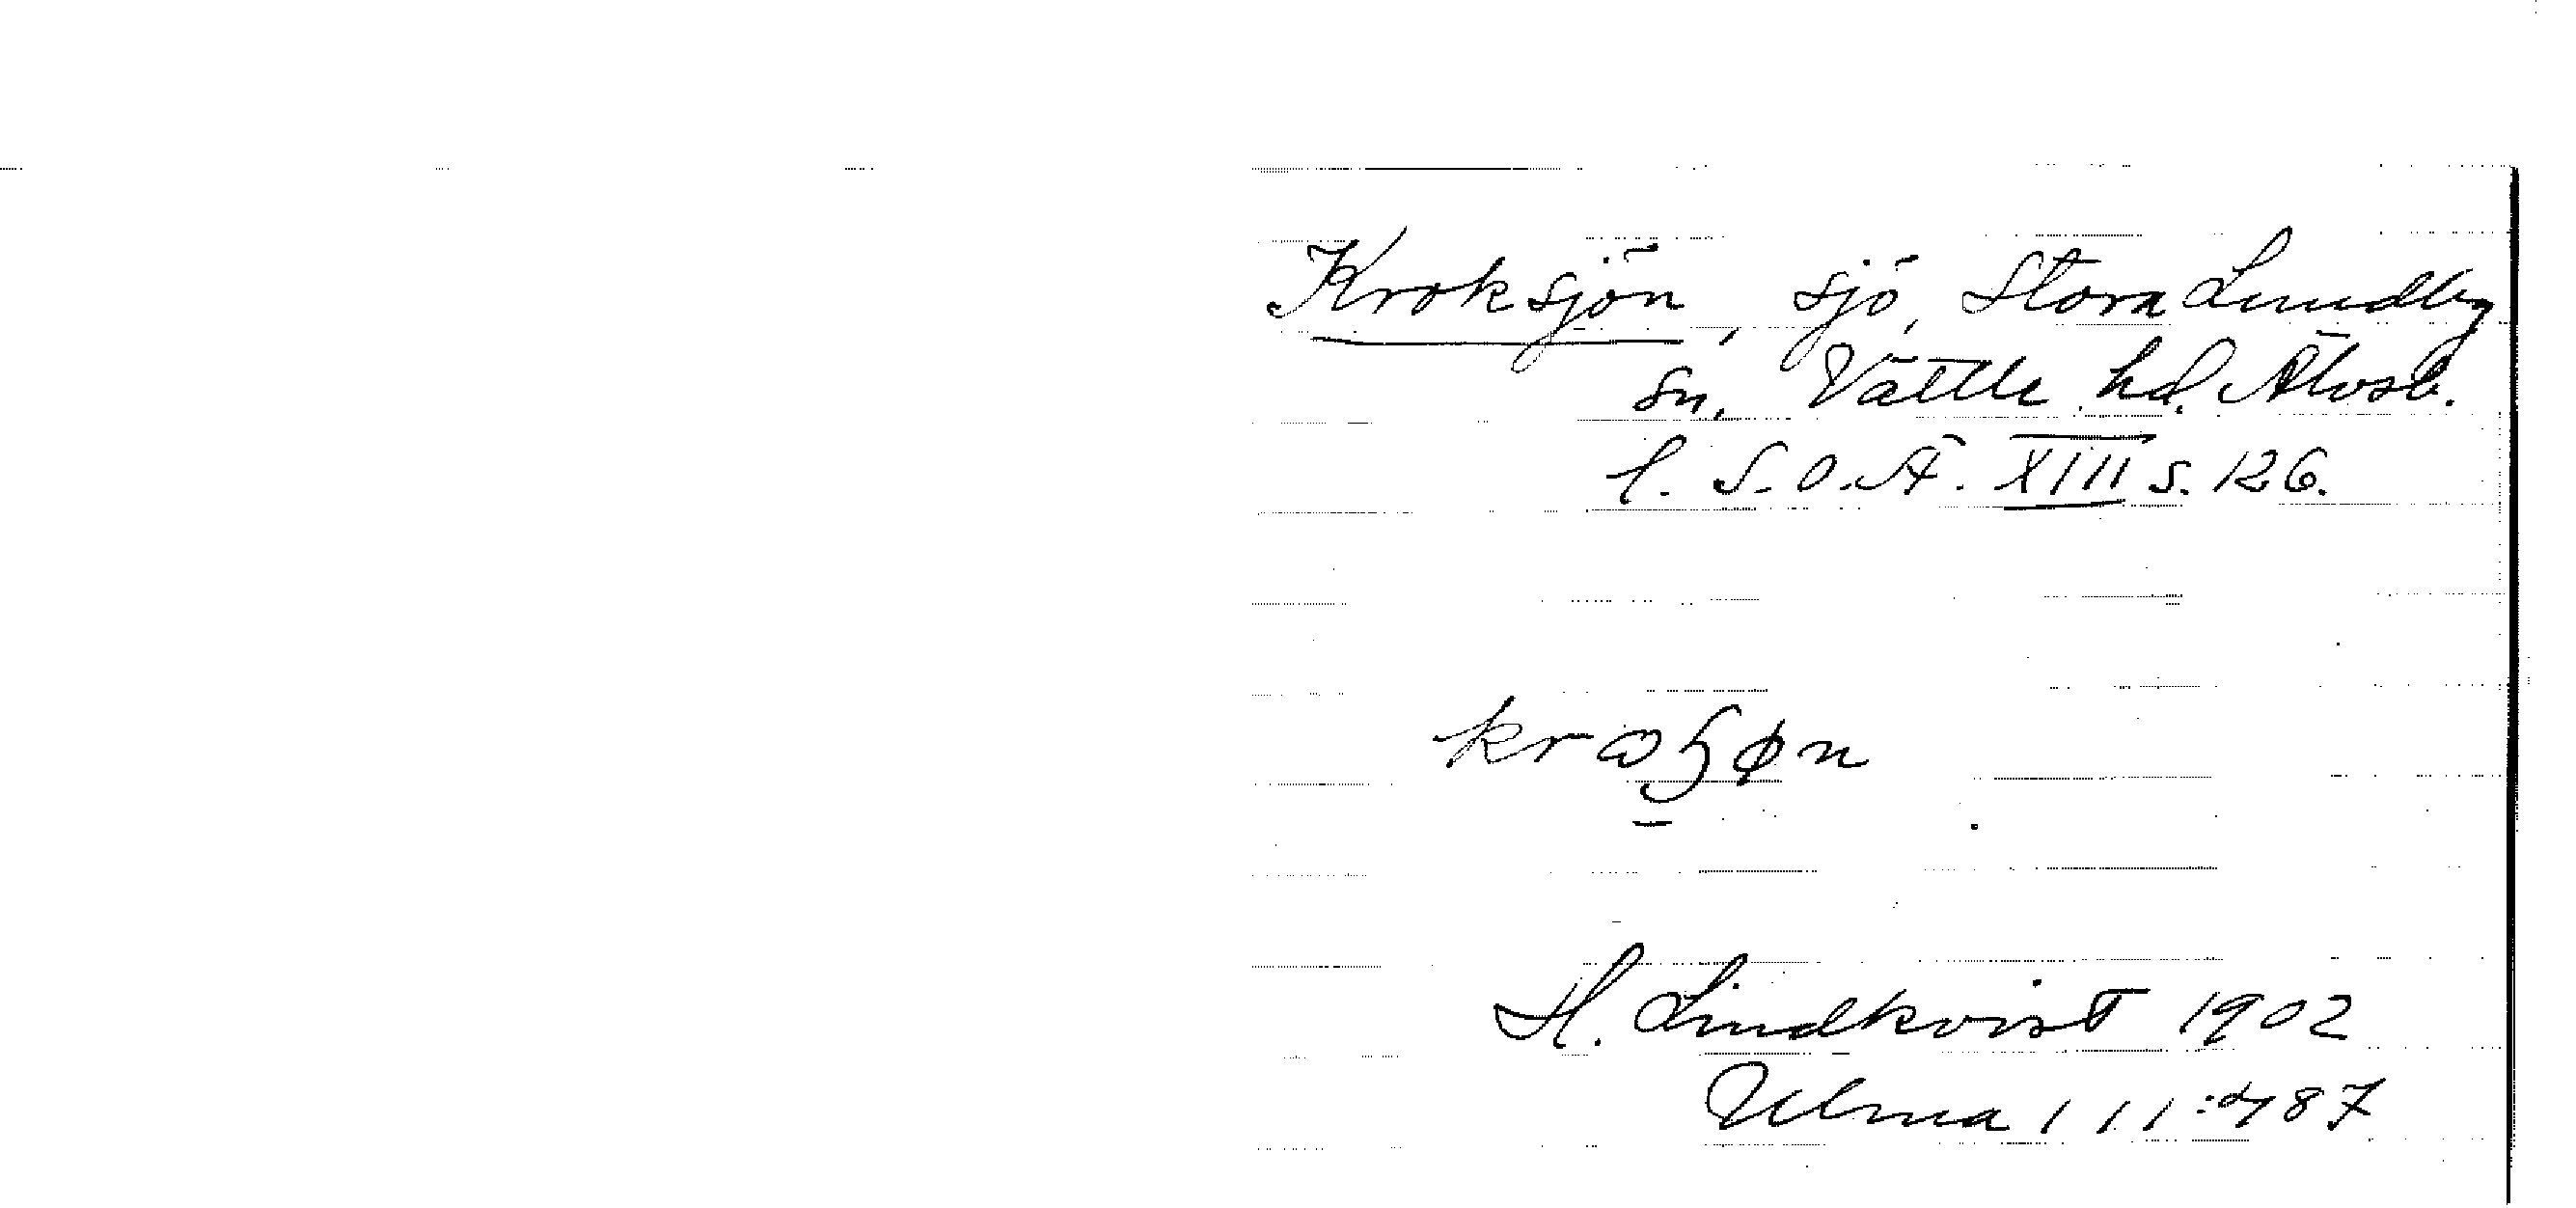 Kroksjön, sjö, Stora Lundby
sn. Vättle hd. Älvsb.
l. S.O.Ä. XIII s. 126.
H. Lindkvist 1902
Ulma 111:487